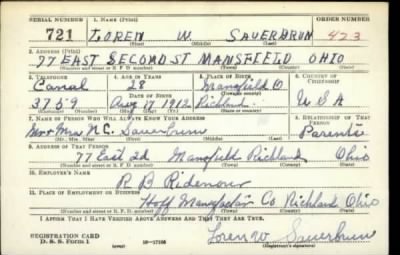 SERIAL NUMBER 1. NAME (Print) ORDER NUMBER
721 LOREN W. SAUERBRUN 423
(First) (Middle) (Last)
2. ADDRESS (Print)
77 EAST SECOND ST MANSFIELD OHIO
(Number and street or R. F. D. number) (Town) (County) (State)
3. TELEPHONE 4. AGE IN YEARS 5. PLACE OF BIRTH 6. COUNTRY OF CITIZENSHIP
Canal 28 Mansfield O
DATE OF BIRTH
3759 Aug 17 1912 Richland U S A
(Exchange) (Number) (Mo.) (Day) (Yr.) (State or country)
7. NAME OF PERSON WHO WILL ALWAYS KNOW YOUR ADDRESS 8. RELATIONSHIP OF THAT PERSON
Mr & Mrs N.C. Sauerbrun Parents
(Mr., Mrs., Miss) (First) (Middle) (Last)
9. ADDRESS OF THAT PERSON
77 East 2d Mansfield Richland Ohio
(Number and street or R. F. D. number) (Town) (County) (State)
10. EMPLOYER'S NAME
R B Ridenour
11. PLACE OF EMPLOYMENT OR BUSINESS
Hoff Richland Ohio
(Number and street or R. F. D. number) (Town) (County) (State)
I AFFIRM THAT I HAVE VERIFIED ABOVE ANSWERS AND THAT THEY ARE TRUE.
REGISTRATION CARD
D. S. S. Form 1 (over) 16—17105 Loren W Sauerbrun
(Registrant's signature)